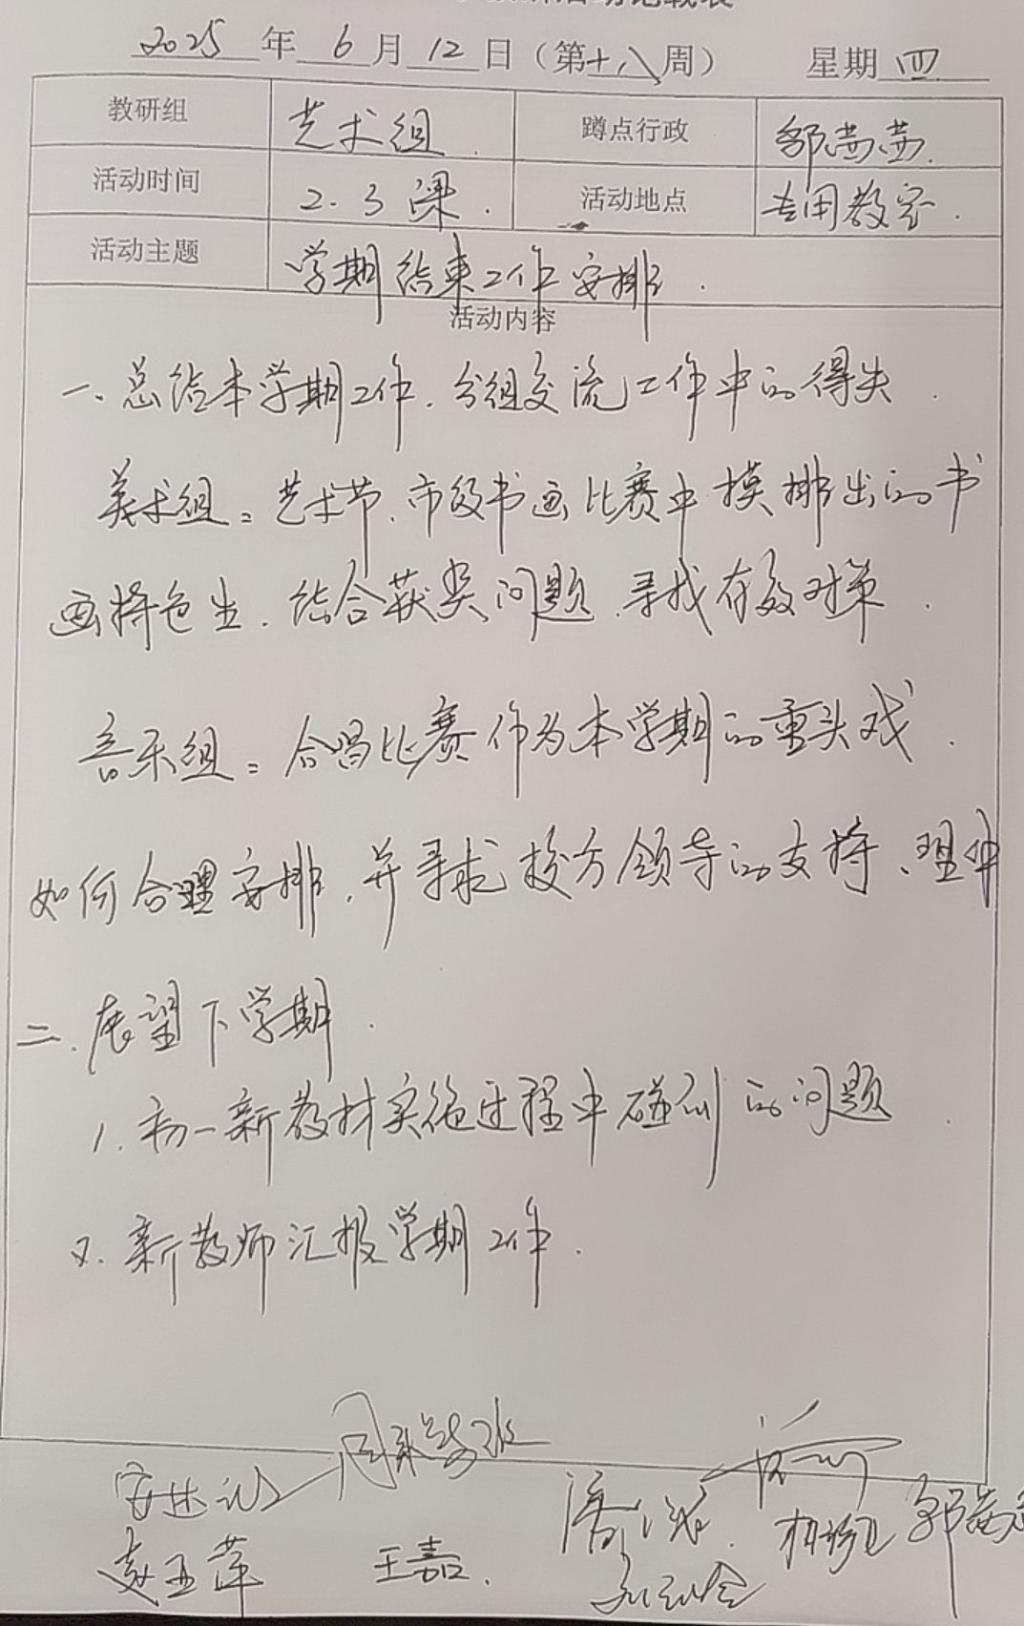 活动记载表
2025 年 6 月 12 日（第十八周） 星期 四
教研组 艺术组. 蹲点行政 邹茜茜.
活动时间 2.3课. 活动地点 专用教室.
活动主题 学期结束工作安排.
活动内容
一、总结本学期工作.分组交流工作中的得失.
美术组：艺术节.市级书画比赛中摸排出的书
画特色生.结合获奖问题.寻找有效对策.
音乐组：合唱比赛作为本学期的重头戏.
如何合理安排.并寻求校方领导的支持、理解
二.展望下学期.
1.初一新教材实施过程中碰到的问题.
2.新教师汇报学期工作.
王嘉.